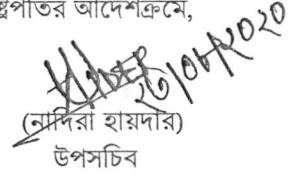 ষ্ট্রপতির আদেশক্রমে,
২৬/০৮/২০২০
(নাদিরা হায়দার)
উপসচিব